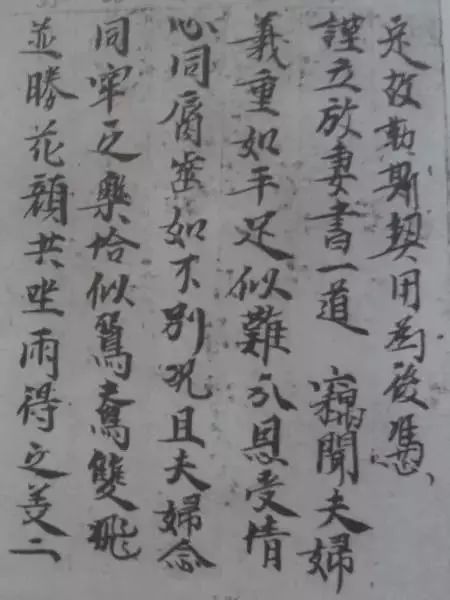 定故勒斯契用為後憑
謹立放妻書一道 竊聞夫婦
義重如手足似難分恩受情
心同唇如不別況且夫婦念
同牢之樂恰似鴛鴦雙飛
並勝花顏共坐兩得之美二